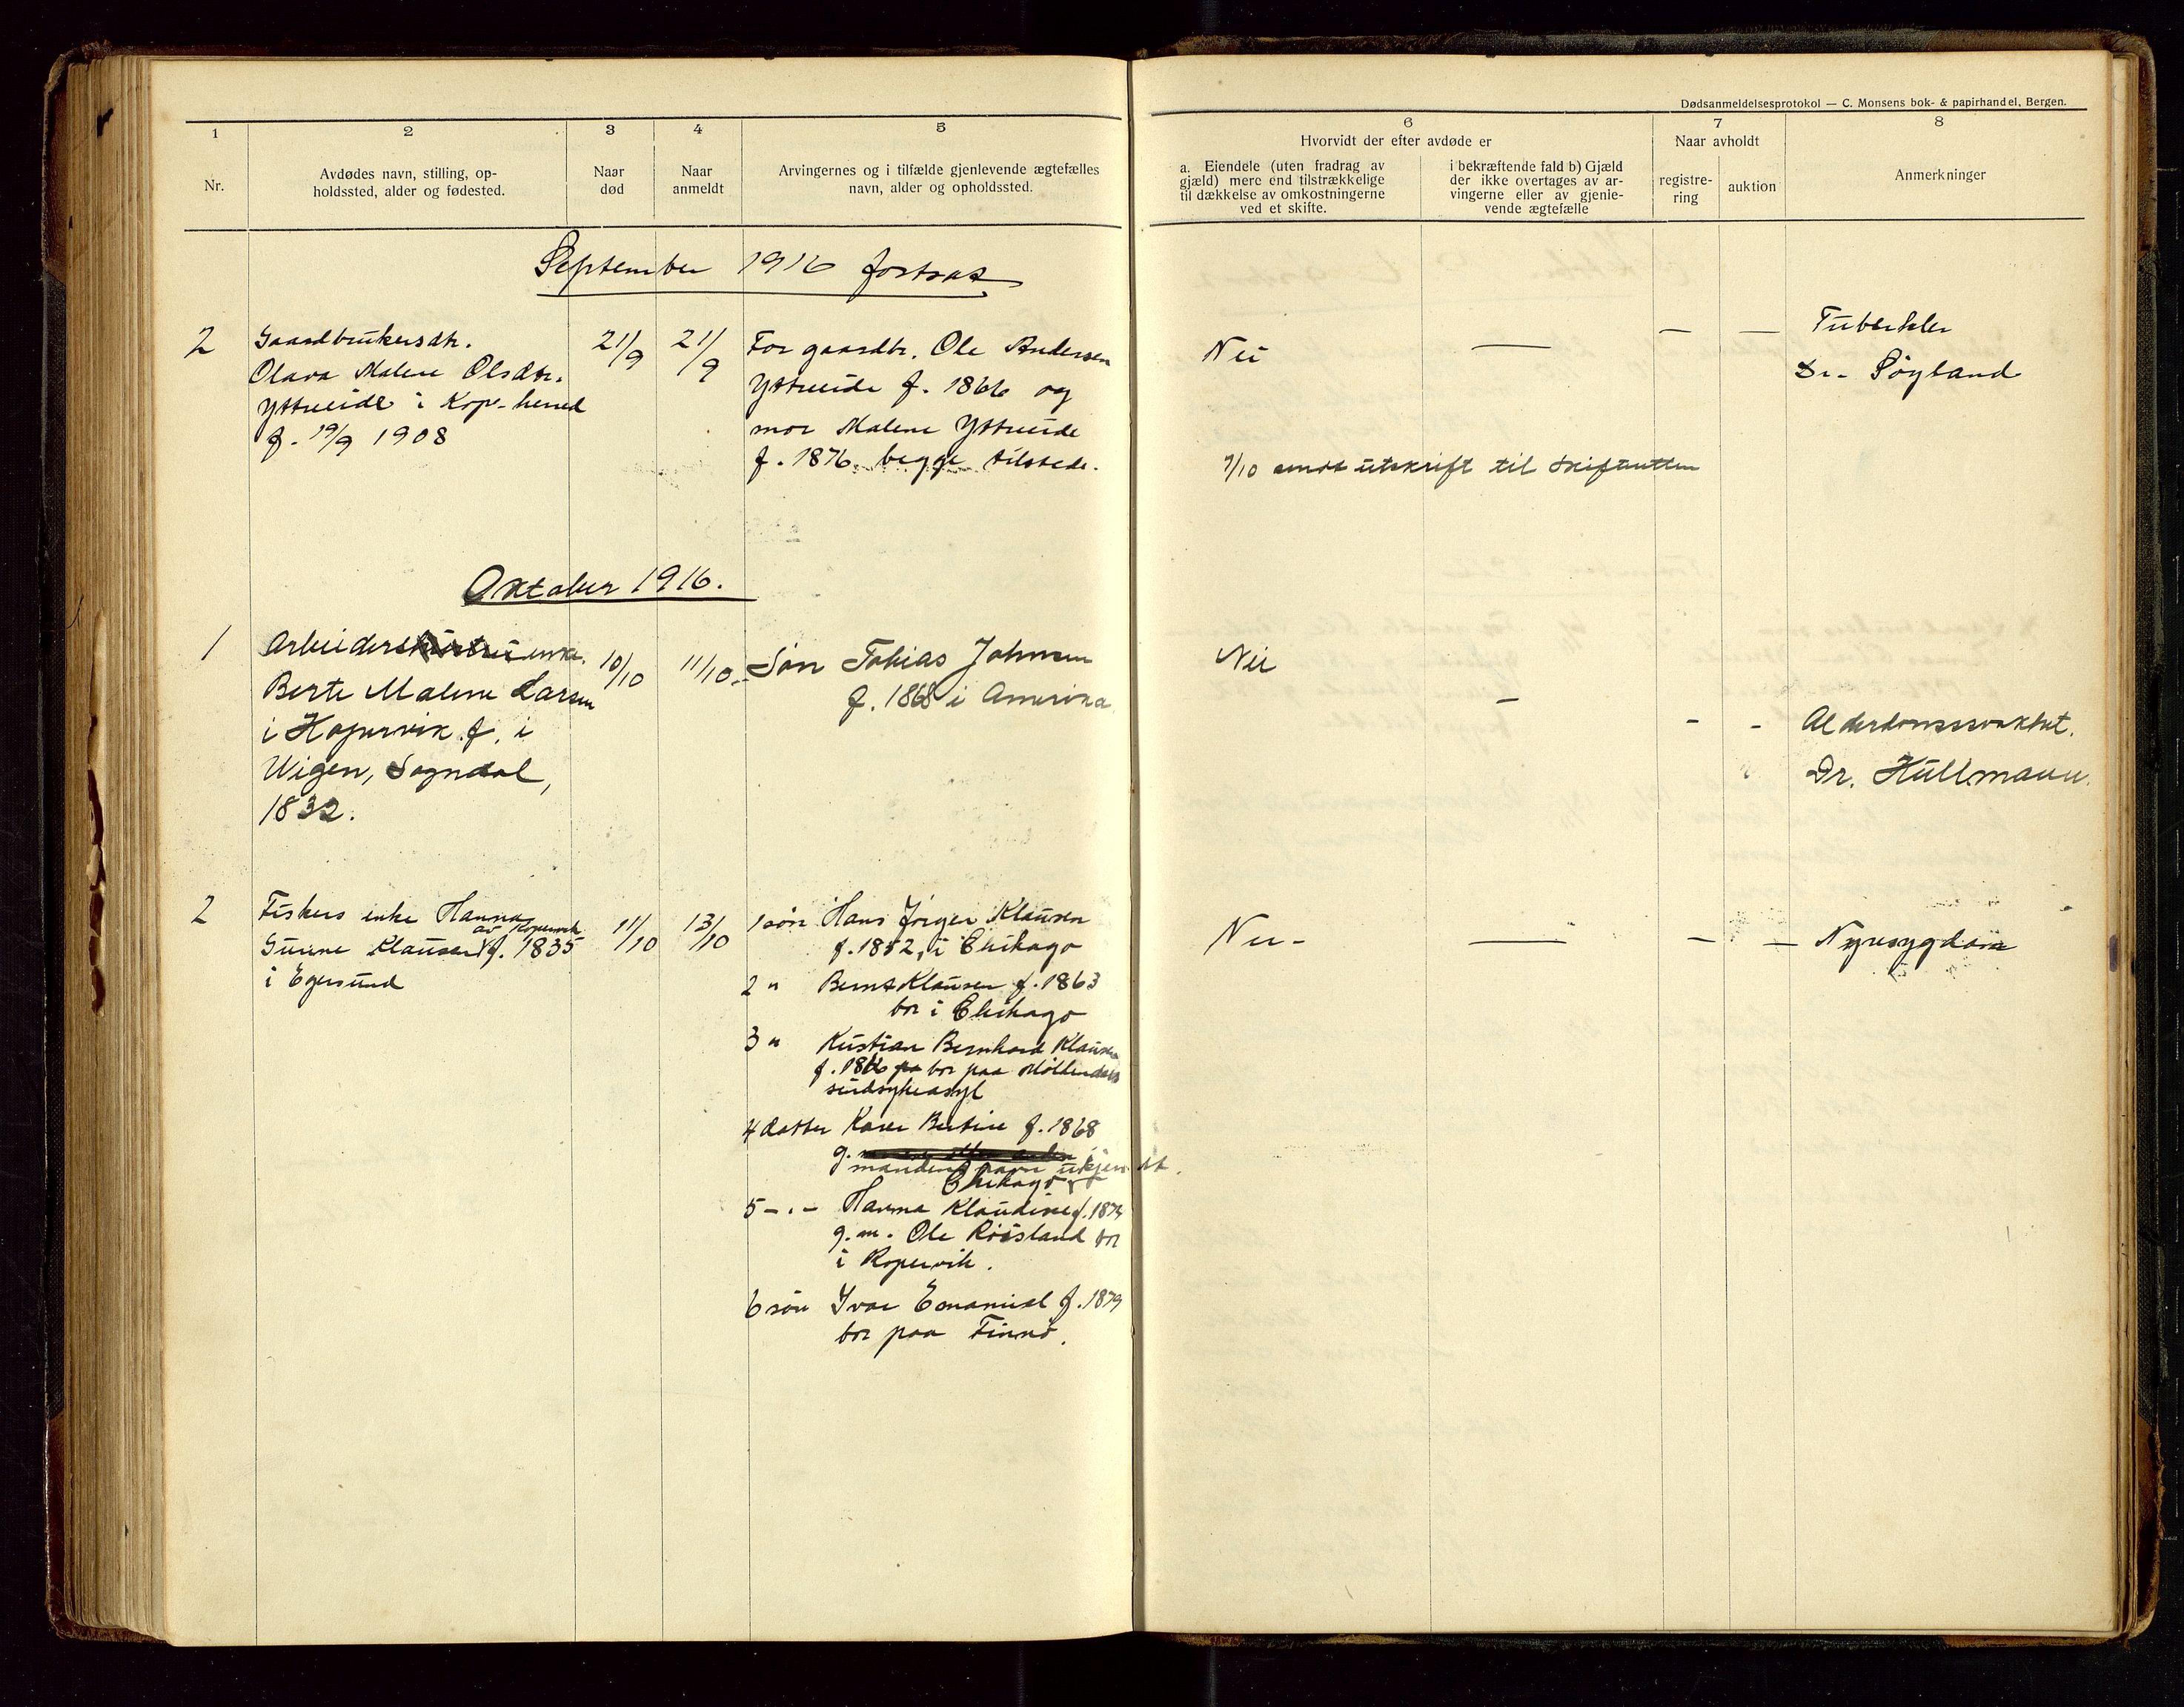 Dødsanmeldelsesprotokol — C. Monsens bok- & papirhandel, Bergen.
1
2
3
4
5
6
7
8
Nr.
Avdødes navn, stilling, op-
holdssted, alder og fødested.
Naar
død
Naar
anmeldt
Arvingernes og i tilfælde gjenlevende ægtefælles
navn, alder og opholdssted.
Hvorvidt der efter avdøde er
a. Eiendele (uten fradrag av
gjæld) mere end tilstrækkelige
til dækkelse av omkostningerne
ved et skifte.
i bekræftende fald b) Gjæld
der ikke overtages av ar-
vingerne eller av gjenle-
vende ægtefælle
Naar avholdt
registre-
ring
auktion
Anmerkninger
September 1916 fortsat
2
Gaardbrukersdtr.
Olava Malene Olsdtr.
Ystreeide i Kop.-herred
f. 19/9 1908
21/9
21/9
Far gaardbr. Ole Andersen
Ystreeide f. 1866 og
mor Malene Ystreeide
f. 1876. begge tilstede.
Nei
—
—
—
Tuberkler
Dr. Søyland
7/10 sendt utskrift til skifteretten
Oktober 1916.
1
Arbeiders enke.
Berte Malene Larsen
i Kopervik f. i
Wigen, Sogndal,
1832.
10/10
11/10
Søn Tobias Johnsen
f. 1868 i Amerika
Nei
-
-
-
Alderdomssvakhet.
Dr. Hüllmann.
2
Fiskers enke Hanna
av Kopervik
Gurine Klausen f. 1835
i Egersund
11/10
13/10
1 søn Hans Jørgen Klausen
f. 1852, i Chikago
2 " Bernt Klausen f. 1863
bor i Chikago
3 " Kristian Bernhard Klausen
f. 1866 bor paa Møllendals
sindsykeasyl
4 datter Karen Bertine f. 1868
g.
mandens navn ukjendt.
Chikago
5 -.- Hanna Klaudine f. 1873
g.m. Ole Röisland bor
i Kopervik.
6 søn Ivar Emanuel f. 1879
bor paa Finnø.
Nei -
—
—
—
Nyresygdom